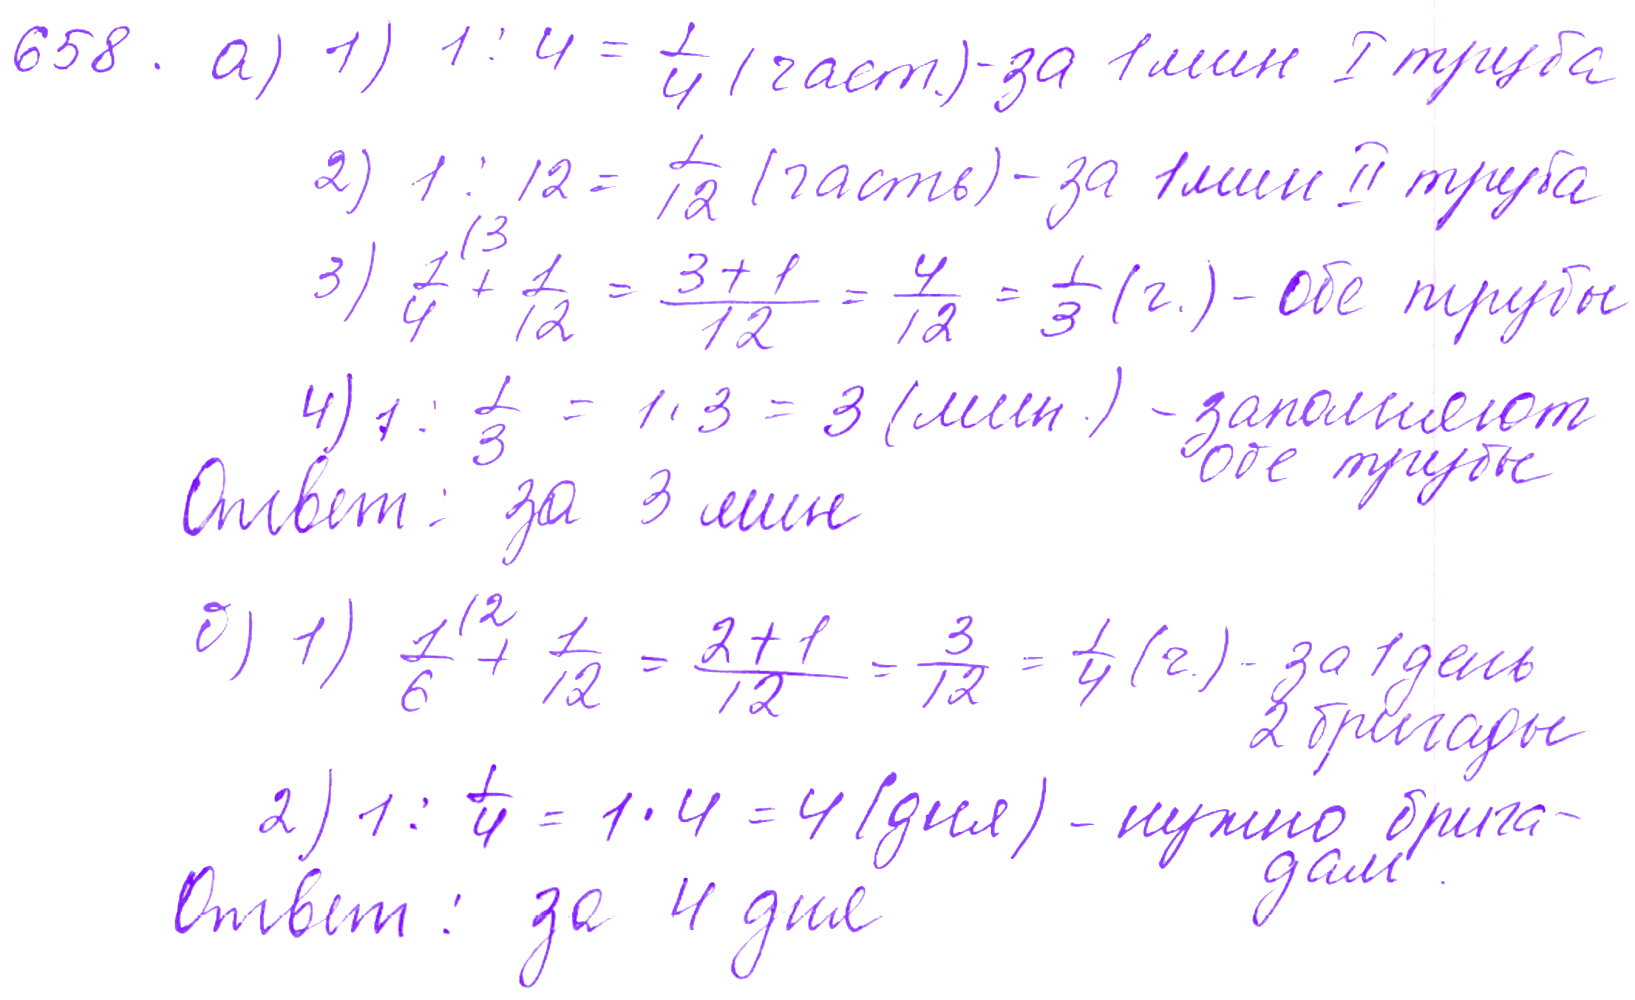 658. а) 1) 1 : 4 = 1/4 (част.) - за 1 мин I труба
2) 1 : 12 = 1/12 (часть) - за 1 мин II труба
3) 1/4 (3 + 1/12 = 3+1/12 = 4/12 = 1/3 (ч.) - Обе трубы
4) 1 : 1/3 = 1·3 = 3 (мин.) - заполняют
обе трубы
Ответ: за 3 мин
б) 1) 1/6 (2 + 1/12 = 2+1/12 = 3/12 = 1/4 (ч.) - за 1 день
2 бригады
2) 1 : 1/4 = 1·4 = 4 (дня) - нужно брига-
дам.
Ответ: за 4 дня